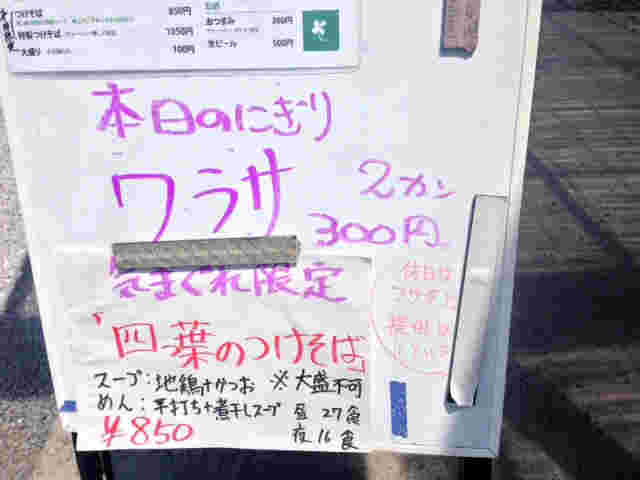 つけそば 850円
特製つけそば 1050円
大盛り 100円
おつまみ 200円
生ビール 500円
本日のにぎり
ワラサ 2カン
300円
気まぐれ限定
「四葉のつけそば」
スープ:地鶏+かつお ※大盛不可
めん:平打ち+煮干しスープ 昼27食
¥850 夜16食